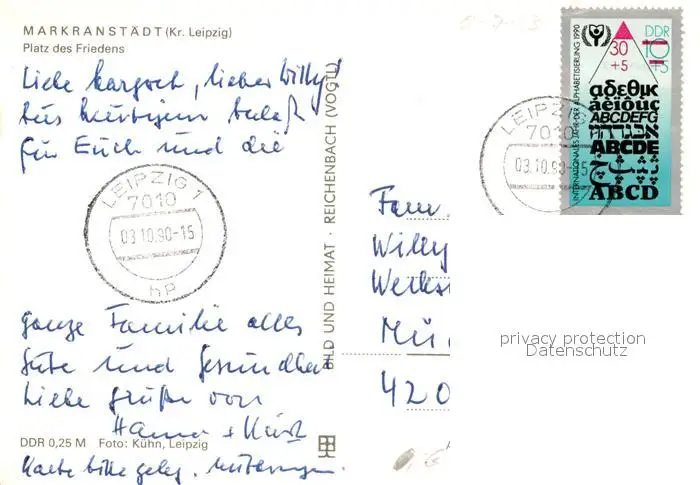 MARKRANSTÄDT (Kr. Leipzig)
Platz des Friedens
Liebe Margret, lieber Willy!
Aus heutigem Anlaß
für Euch und die
LEIPZIG 1
7010
03.10.90-15
hP
ganze Familie alles
Gute und Gesundheit
Liebe Grüße von
Hanna + Kurt
DDR 0,25 M Foto: Kühn, Leipzig
Karte bitte geleg. mitbringen.
BILD UND HEIMAT · REICHENBACH (VOGTL)
LEIPZIG
7010
03.10.90-15
INTERNATIONALES JAHR DER ALPHABETISIERUNG 1990
DDR
30 10
+5 +5
αδεθικ
àëïôùç
ABCDEFG
ABCDE
ABCD
Fam.
Willy
Mü
420
privacy protection
Datenschutz